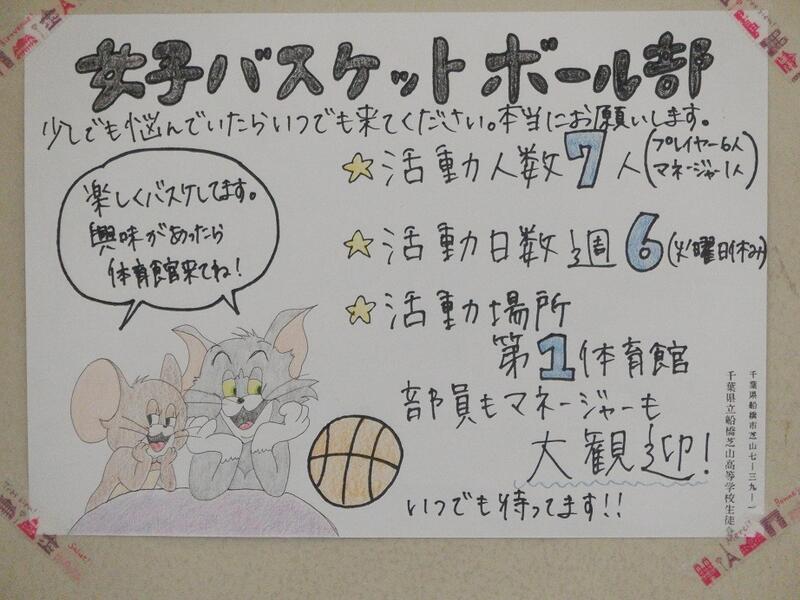 女子バスケットボール部
少しでも悩んでいたらいつでも来てください。本当にお願いします。
☆活動人数7人(プレイヤー6人
マネージャー1人)
楽しくバスケしてます。
興味があったら
体育館来てね!
☆活動日数 週6(火曜日休み)
☆活動場所
第1体育館
部員もマネージャーも
大観迎!
いつでも待ってます!!
千葉県船橋市芝山七ー三九ー一
千葉県立船橋芝山高等学校生徒